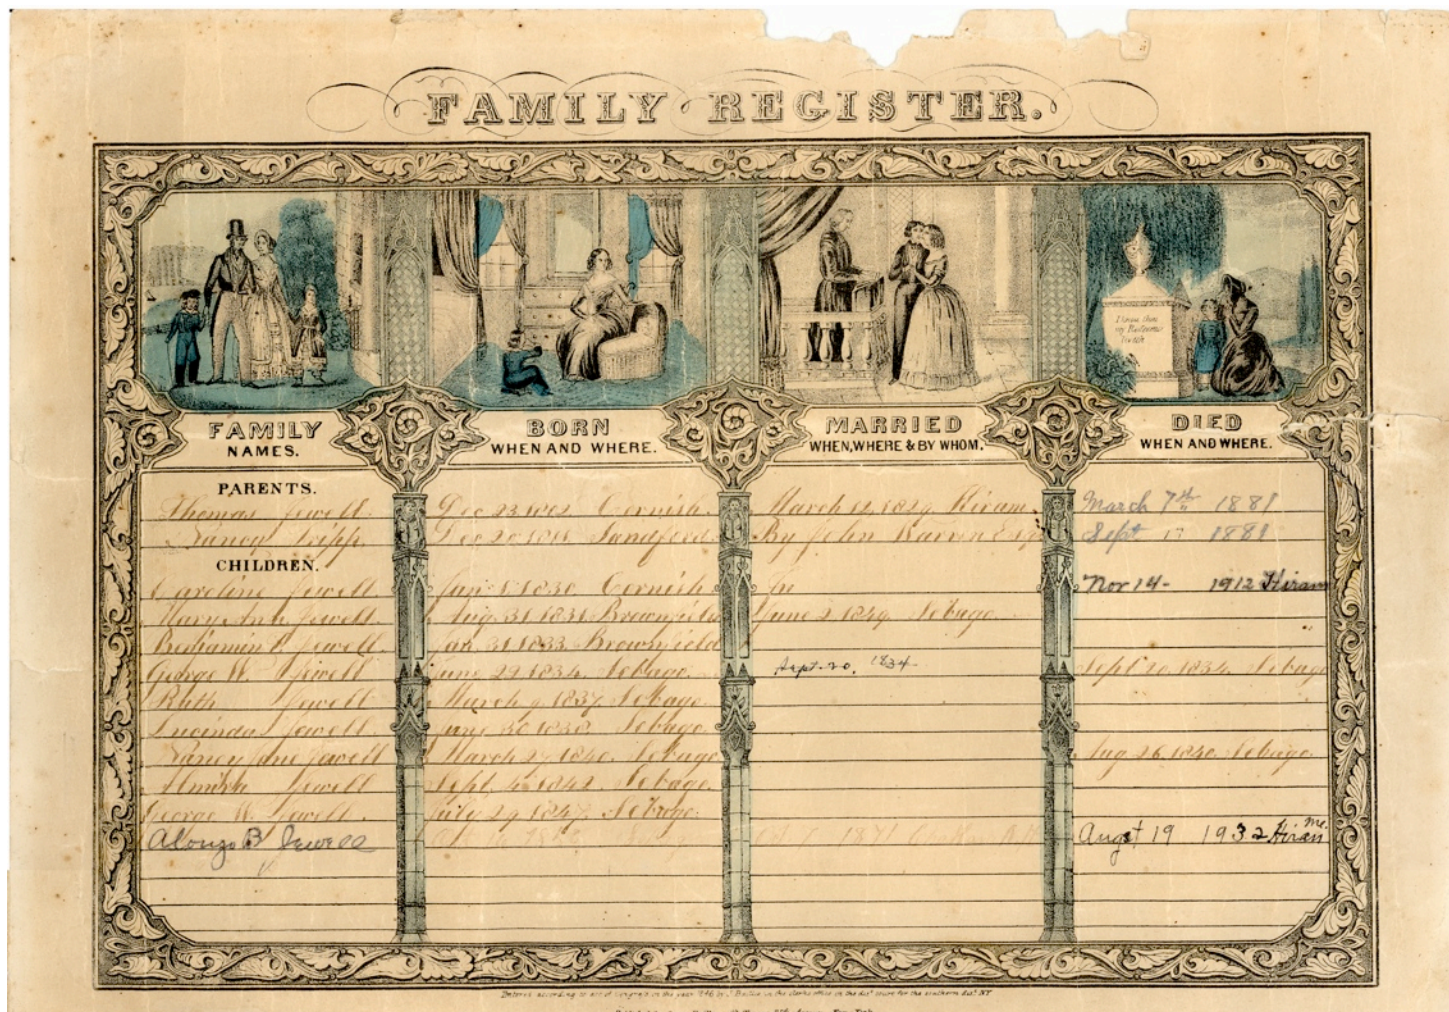 FAMILY REGISTER.
I know that
my Redeemer
liveth
FAMILY
NAMES.
BORN
WHEN AND WHERE.
MARRIED
WHEN, WHERE & BY WHOM.
DIED
WHEN AND WHERE.
PARENTS.
Thomas Jewell Dec 23 1802 Cornish. March 12, 1829 Hiram. March 7th 1881
Nancy Tripp Dec Sandford By John Warren Esq Sept 1881
CHILDREN.
Caroline Jewell Jan 1 1830 Cornish Nov 14 - 1912 Hiram
Mary Ann Jewell. Aug. 31 1831 Brownfield June 2 1849 Sebago.
Benjamin Jewell Jan 31 1833 Brownfield
George W. Jewell June 29 1834 Sebago. Sept. 20. 1834 Sept 20 1834. Sebago
Ruth Jewell March 9 1837 Sebago.
Lucinda Jewell June 30 1838 Sebago.
Nancy Jane Jewell March 1840. Sebago Aug 26 1840 Sebago
Almira Jewell Sept 4 1842 Sebago.
George W. Jewell. July 29 1847 Sebago.
Alonzo B Jewell Oct 1871 August 19 1932 Hiram Me.
Entered according to act of Congress in the year 1846 by J. Baillie in the clerks office of the dist court for the southern dist NY